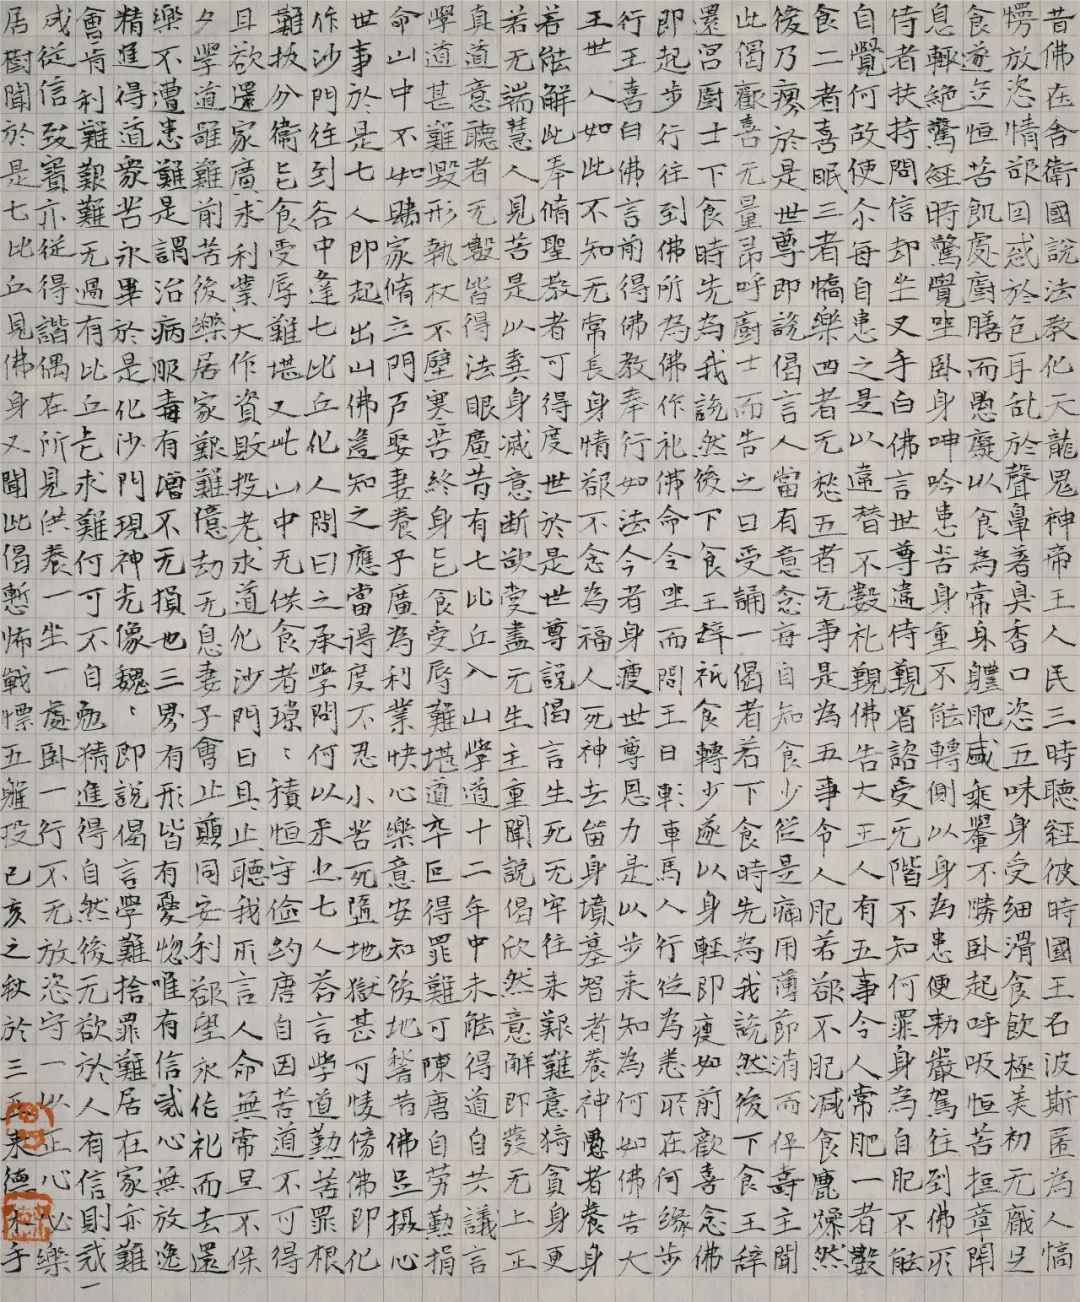 昔佛在舍衛國說法教化天龍鬼神帝王人民三時聽經彼時國王名波斯匿為人憍
慢放恣情欲因惑於色耳乱於聲鼻著臭香口恣五味身受細滑食飲極美初无厭足
食遂立恒苦飢處廚膳而愚癡以食為常身體肥盛乘轝不勝臥起呼吸恒苦揎章闇
息輙絕驚經時驚覺坐臥身呻吟患苦身重不能轉側以身為患便勅嚴駕往到佛所
侍者扶持問信却坐叉手白佛言世尊違侍覲省諮受无階不知何罪身為自肥不能
自覺何故使尒每自患之是以遠替不數礼覲佛告大王人有五事令人常肥一者數
食二者喜眠三者憍樂四者无愁五者无事是為五事令人肥若欲不肥減食麁燥然
後乃瘦於是世尊即說偈言人當有意念每自知食少從是痛用薄節消而保壽主聞
此偈歡喜无量即呼廚士而告之曰受誦一偈者若下食時先為我說然後下食王辞
還宮廚士下食時先為我說然後下食王辞祇食轉少遂以身輕即瘦如前歡喜念佛
即起步行往到佛所為佛作礼佛命令坐而問王日車馬人行從為悉所在何緣步
行王喜白佛言前得佛教奉行如法今者身瘦世尊恩力是以步来知為何如佛告大
王世人如此不知无常長身情欲不念為福人死神去留身墳墓智者養神愚者養身
若能解此奉脩聖教者可得度世於是世尊說偈言生死无牢往来艱難意猗貪身更
若无端慧人見苦是以棄身減意断欲愛盡无生主重聞說偈欣然意解即發无上正
真道意聽者无數皆得法眼廣昔有七比丘入山學道十二年中未能得道自共議言
學道甚難毀形執杖不壁寒苦終身乞食受辱難堪道卒叵得罪難可陳唐自劳勤捐
命山中不如賭家脩立門戸娶妻養子廣為利業快心樂意安知後地昔佛足摄心
世事於是七人即起出山佛遥知之應當得度不忍小苦死墮地獄甚可悽傍佛即化
作沙門往到谷中逢七比丘化人問曰之承學問何以来出七人荅言學道勤苦罪根
難拔分衛乞食受辱難堪又此山中无供食者璟〻積恒守儉約唐自因苦道不可得
且欲還家廣求利業大作資敗投老求道化沙門曰且止聽我所言人命無常旦不保
夕學道雖難前苦後樂居家艱難億劫无息妻子會止同安利欲望永作礼而去還
樂不遭患難是謂治病服毒有增不无損也三界有形皆有憂惚唯有信戒心無放逸
精進得道衆苦永畢於是化沙門現神光像魏〻即說偈言學難捨罪難居在家亦難
會肯利難艱難无過有比丘乞求難何可不自勉精進得自然後无欲於人有信則戒一
成從信致寳亦從得諧偶在所見供養一坐一處臥一行不无放恣守一以正心心樂
居樹閒於是七比丘見佛身又聞此偈慙怖戰慄五體投己亥之秋於三来德手